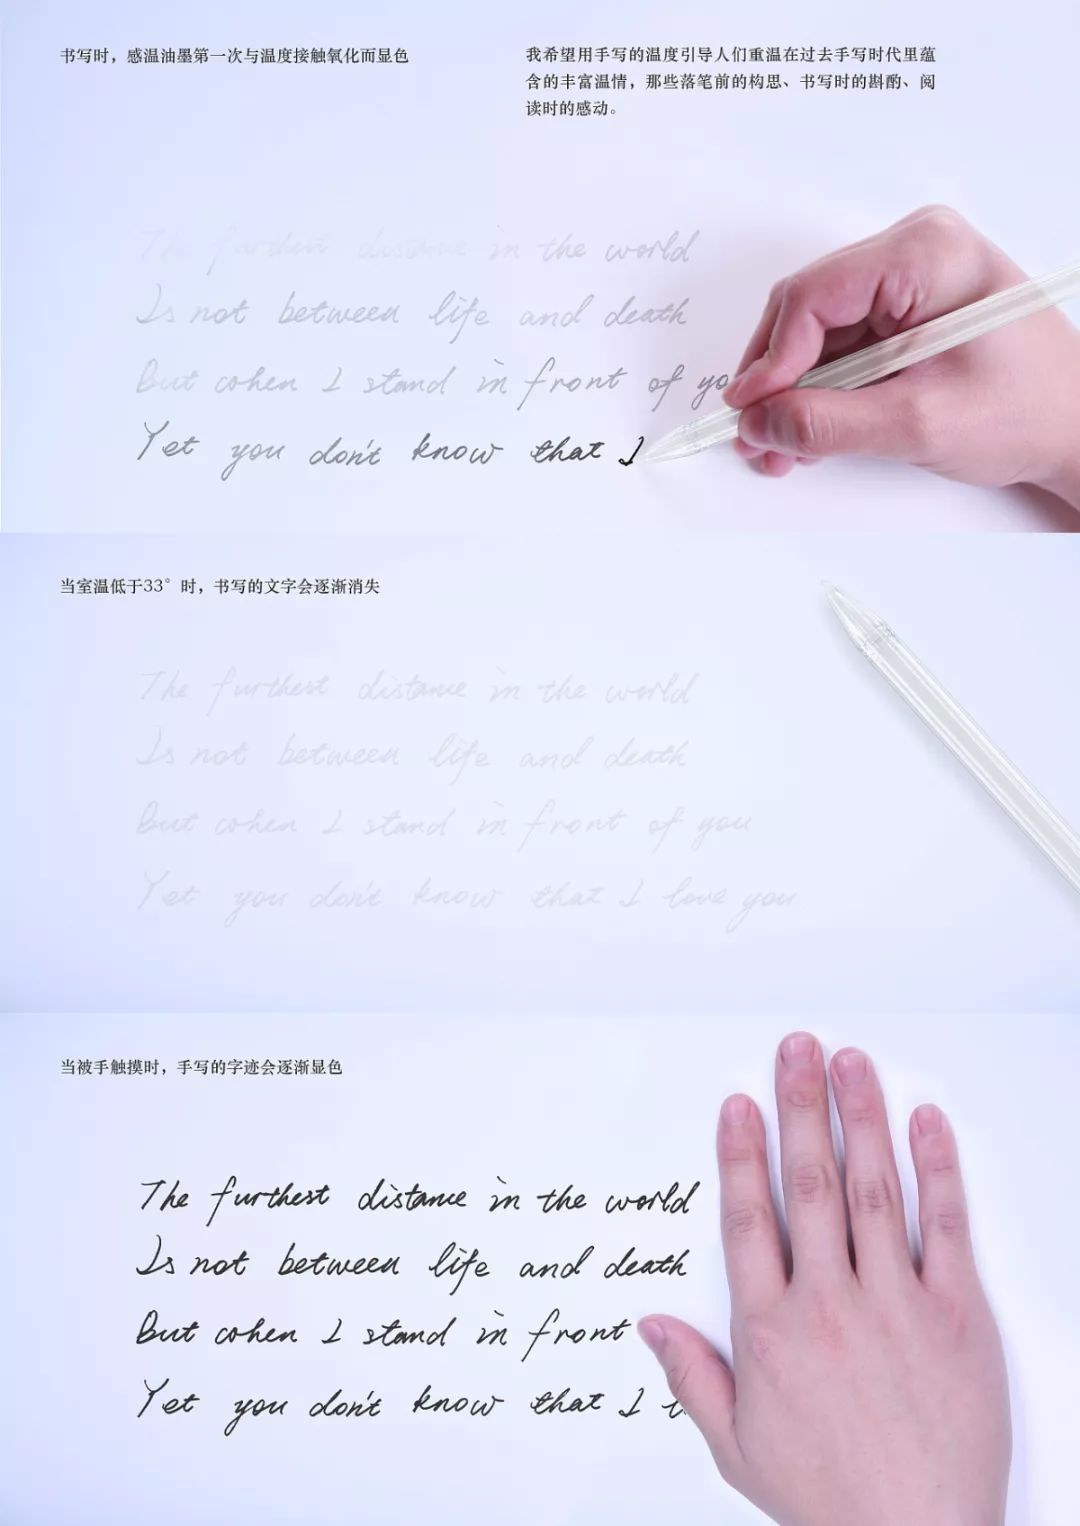 书写时，感温油墨第一次与温度接触氧化而显色
我希望用手写的温度引导人们重温在过去手写时代里蕴
含的丰富温情，那些落笔前的构思、书写时的斟酌、阅
读时的感动。
The furthest distance in the world
Is not between life and death
But cohen I stand in front of yo
Yet you don't know that I
当室温低于33°时，书写的文字会逐渐消失
The furthest distance in the world
Is not between life and death
But cohen I stand in front of you
Yet you don't know that I love you
当被手触摸时，手写的字迹会逐渐显色
The furthest distance in the world
Is not between life and death
But cohen I stand in front
Yet you don't know that I